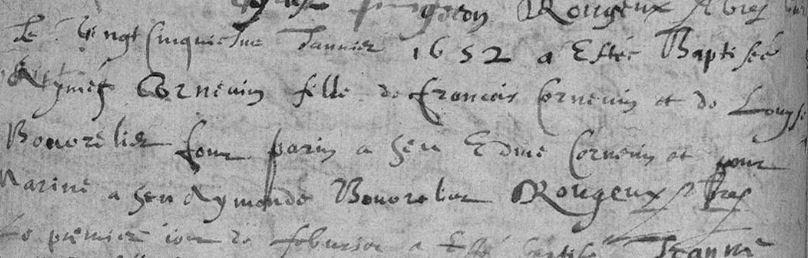 Rougeux
Le Vingt cinquiesme Januier 1652 a Estée Baptisée
Aymée Corneuin fille de francois Corneuin et de Louyse
Bouorelier son parin a heu Edme Corneuin et pour
Marine a heu Aymonde Bouorelier Rougeux
Le premier iour de a Esté baptisé Jeanne